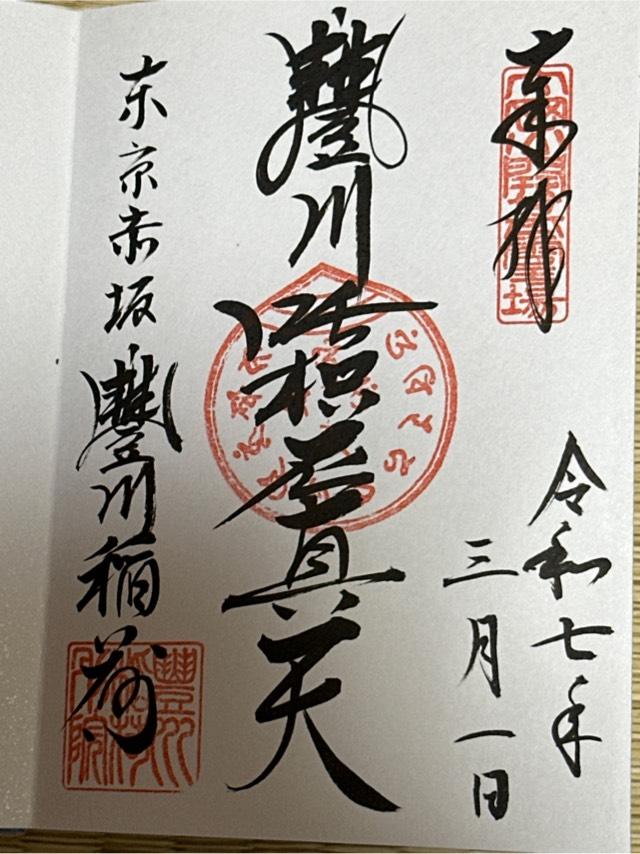 奉拝
令和七年
三月一日
豐川吒枳尼真天
東京赤坂豐川稲荷